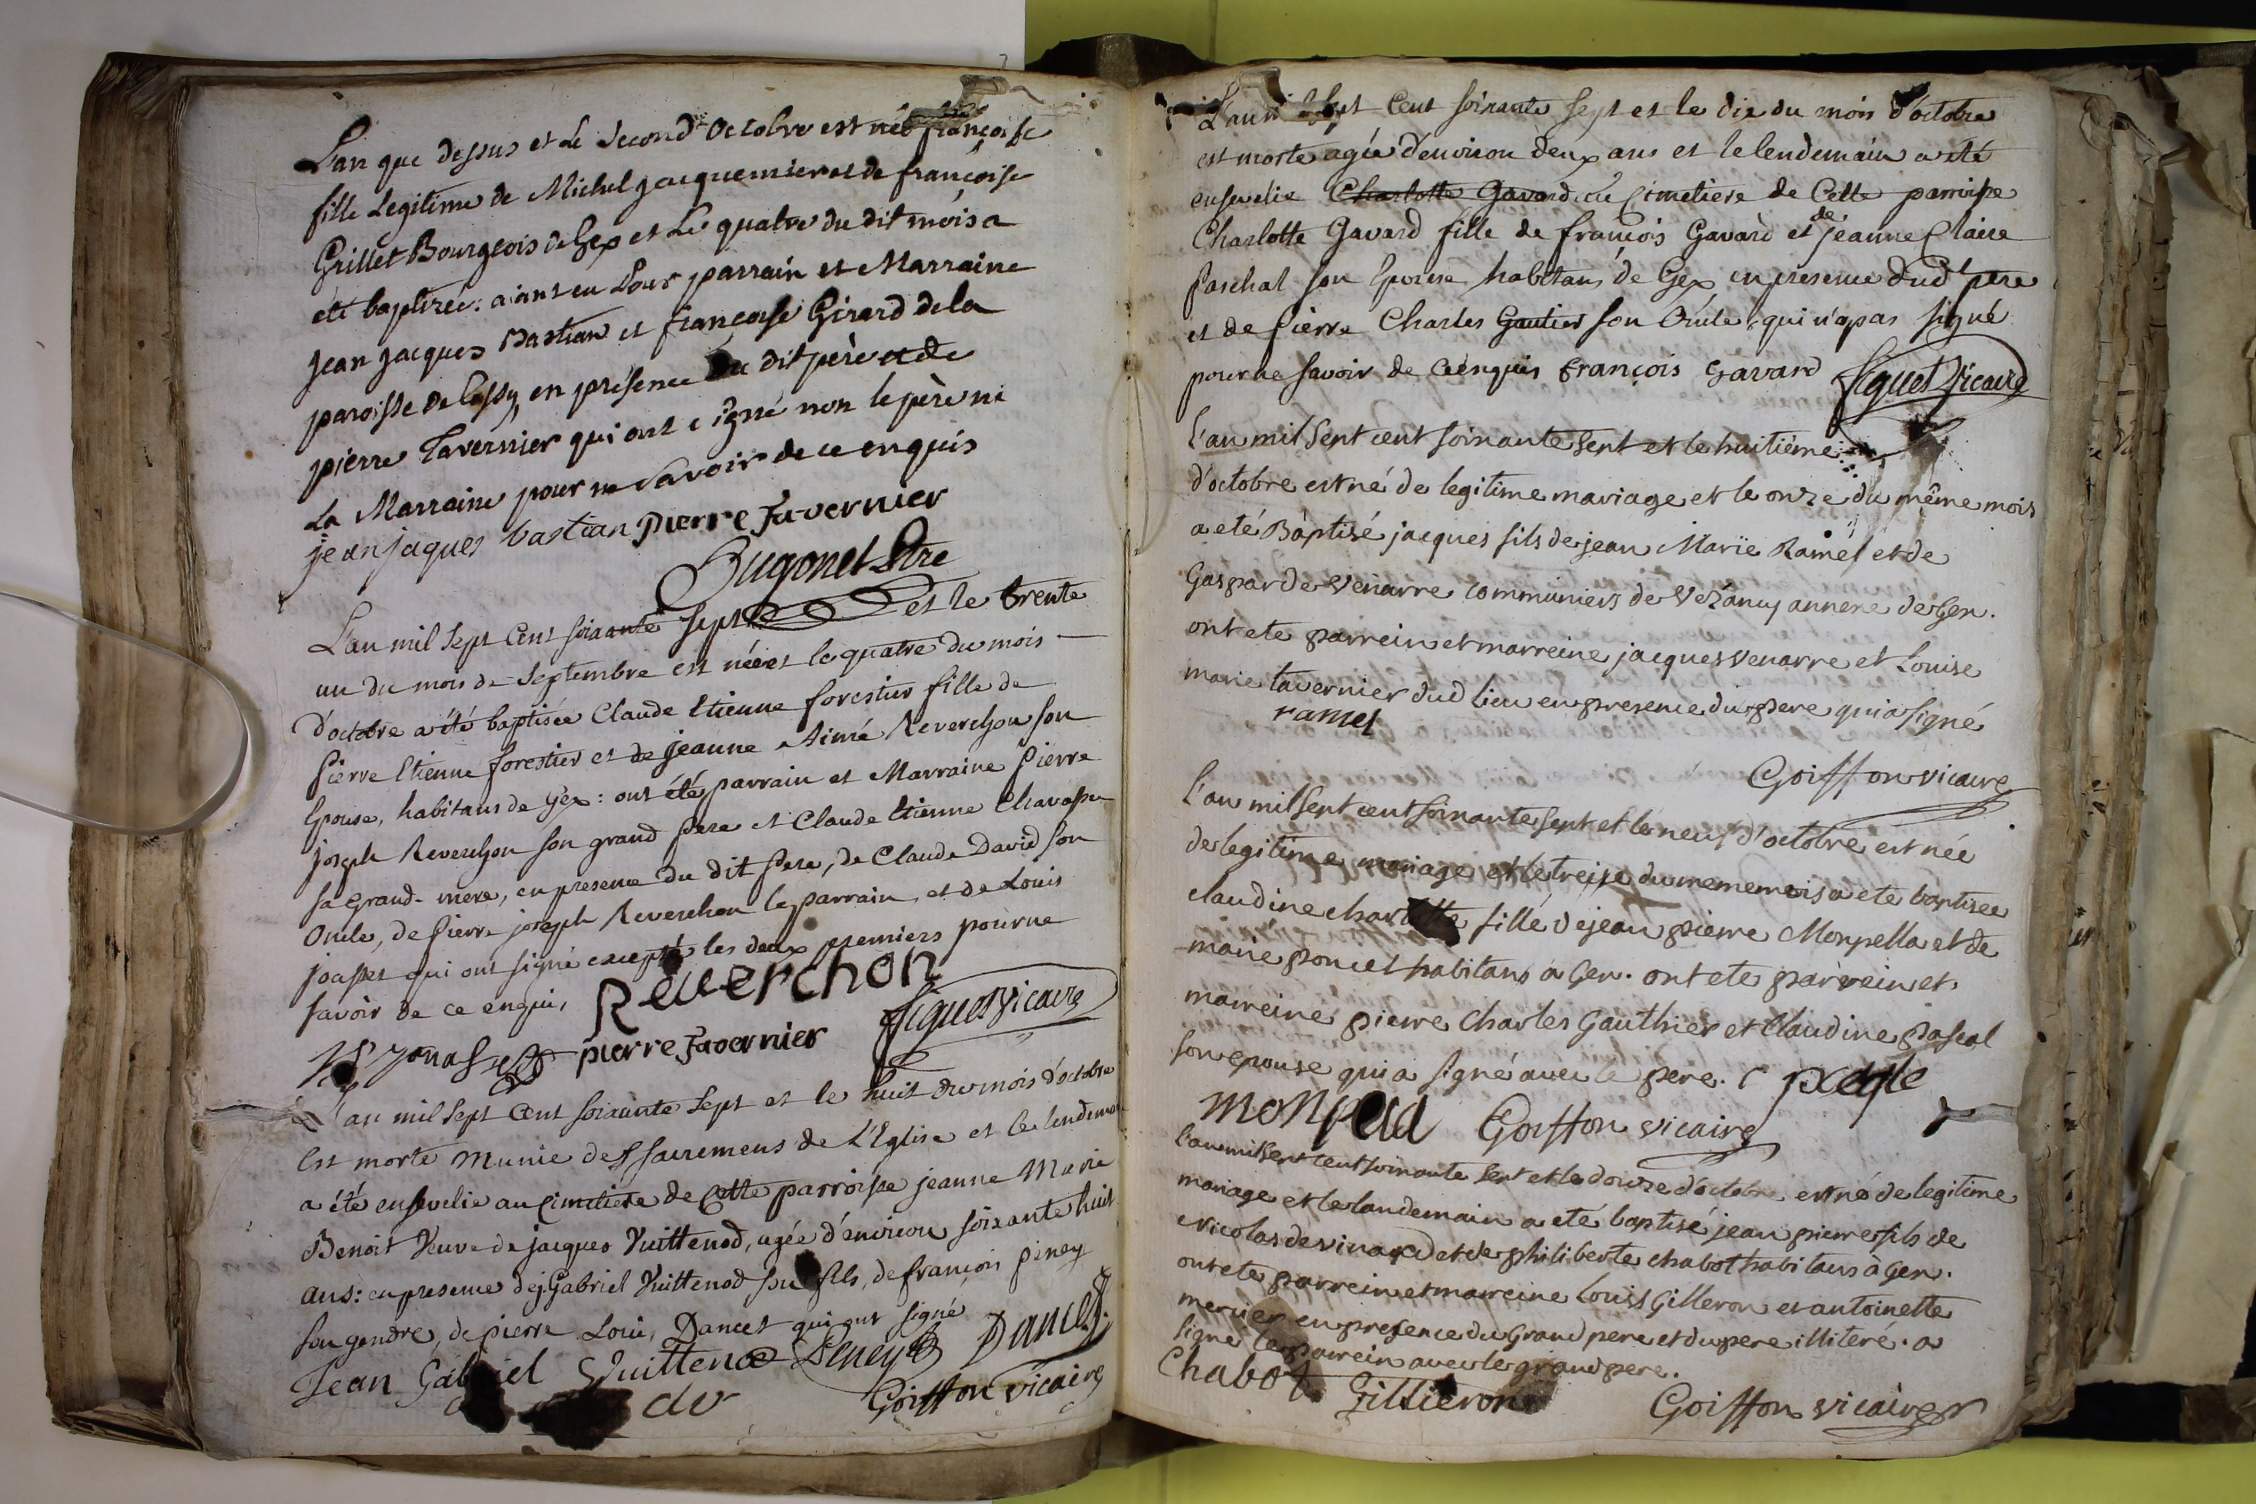 L'an que dessus et Le second Octobre est née françoise
fille Legitime de Michel jacquemier et de françoise
Grillet Bourgeois de Gex et Le quatre du dit mois a
été baptizée: aiant eu Pour parrain et Marraine
jean jacques Bastian et françoise Girard de la
paroisse de Cessy, en présence du dit père et de
pierre Tavernier qui ont signé non le père ni
La Marraine pour ne savoir de ce enquis
jean jaques bastian pierre Tavernier
Hugonet Ptre
L'an mil sept Cent soixante sept et le trente
un du mois de Septembre est née et le quatre du mois
d'octobre a été baptisée Claude Etienne forestier fille de
Pierre Etienne forestier et de jeanne Aimé Reverchon son
Epouse, habitans de Gex: ont été parrain et Marraine Pierre
joseph Reverchon son grand Pere et Claude Etienne Chavasse
sa grand-mere, en presence du dit Pere, de Claude David son
Oncle, de Pierre joseph Reverchon le parrain, et de Louis
joasset qui ont signé excepté les deux premiers pour ne
savoir de ce enquis
Reverchon
pierre Tavernier figuet vicaire
L'an mil sept Cent soixante sept et le huit du mois d'octobre
Est morte munie des sacremens de L'Eglise et le lendemain
a été ensevelie au Cimetiere de Cette parroisse jeanne Marie
Benoit Veuve de jacques Vuittenod, agée d'environ soixante huit
ans: en presence de j. Gabriel Vuittenod son fils, de françois piney
son gendre, de pierre Louis Dancet qui ont signé
Jean Gabriel Vuittenod Peney Dancet
Goiffon vicaire
L'an mil sept Cent soixante sept et le dix du mois d'octobre
est morte agée d'environ deux ans et le lendemain a été
ensevelie Charlotte Gavard au Cimetiere de Cette parroisse
Charlotte Gavard fille de françois Gavard et de jeanne Claire
Paschal son Epouse habitans de Gex en presence dud. pere
et de Pierre Charles Gautier son Oncle qui n'a pas signé
pour ne savoir de ce enquis françois Gavard figuet Vicaire
L'an mil sept cent soixante sept et le huitiéme
d'octobre est né de legitime mariage et le onze du même mois
a eté Baptisé jacques fils de jean Marie Ramel et de
Gasparde Venarre communiers de Vezancy annexe de Gex.
ont ete parrein et marreine jacques Venarre et Louise
marie tavernier dud lieu en presence du pere qui a signé
ramel
Goiffon vicaire
L'an mil sept cent soixante sept et le neuf d'octobre est née
de legitime mariage et le treize du meme mois a ete baptisée
claudine charlotte fille de jean pierre Monpella et de
marie poncet habitans a Gex. ont ete parrein et
marreine pierre Charles Gauthier et Claudine pascal
son epouse qui a signé avec le pere.
Goiffon vicaire
L'an mil sept cent soixante sept et le douze d'octobre est né de legitime
mariage et le landemain a eté baptisé jean pierre fils de
Nicolas de vinard et de philiberte chabot habitans a Gex.
ont ete parrein et marreine Louis Gilleron et antoinette
mercier en presence du Grand pere et du pere illiteré. a
signé le parrein avec le grand pere.
Chabot Gillieron Goiffon vicaire